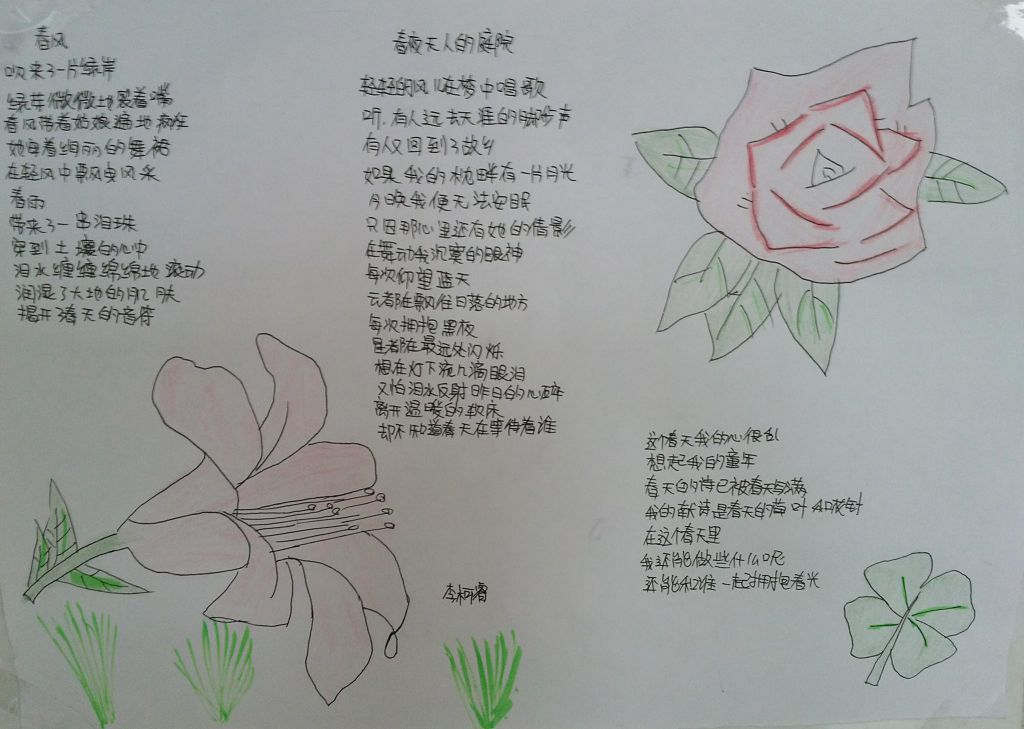 春风
吹来了一片绿岸
绿芽微微地裂着嘴
春风带着姑娘遍地疯狂
她穿着绚丽的舞裙
在轻风中飘点风采
春雨
带来了一串泪珠
穿到土壤的心中
泪水缠缠绵绵地滚动
润湿了大地的肌肤
揭开了春天的音符
春夜无人的庭院
轻轻的风儿在梦中唱歌
听.有人远去天涯的脚步声
有人又回到了故乡
如果我的枕畔有一片月光
今晚我便无法安眠
只因那心里还有她的倩影
在舞动我沉寞的眼神
每次仰望蓝天
云都在飘住日落的地方
每次拥抱黑夜
星都在最远处闪烁
想在灯下流几滴眼泪
又怕泪水反射昨日的心碎
离开温暖的软床
却不知道春天在等待着谁
这个春天我的心很乱
想起我的童年
春天的诗已被春天写满
我的献诗是春天的草叶和松针
在这个春天里
我还能做些什么呢
还能和谁一起拥抱春光
李柯睿